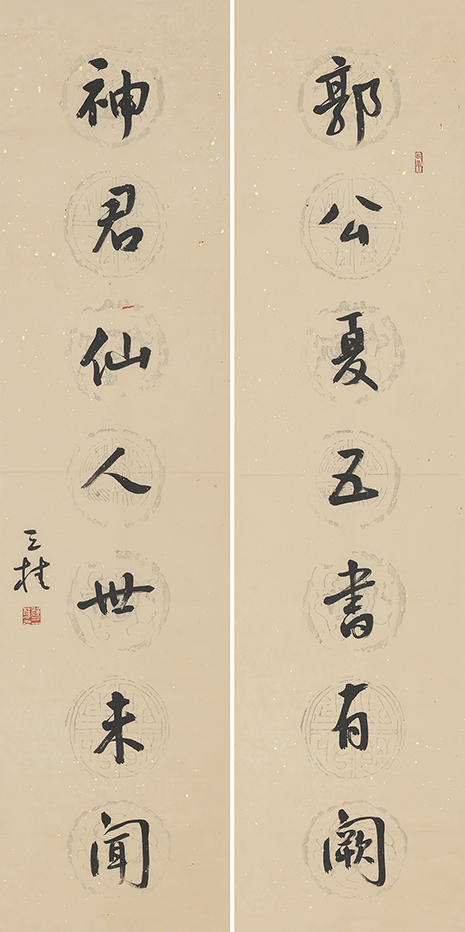 郭公夏五書有闕
神君仙人世未聞
三桂